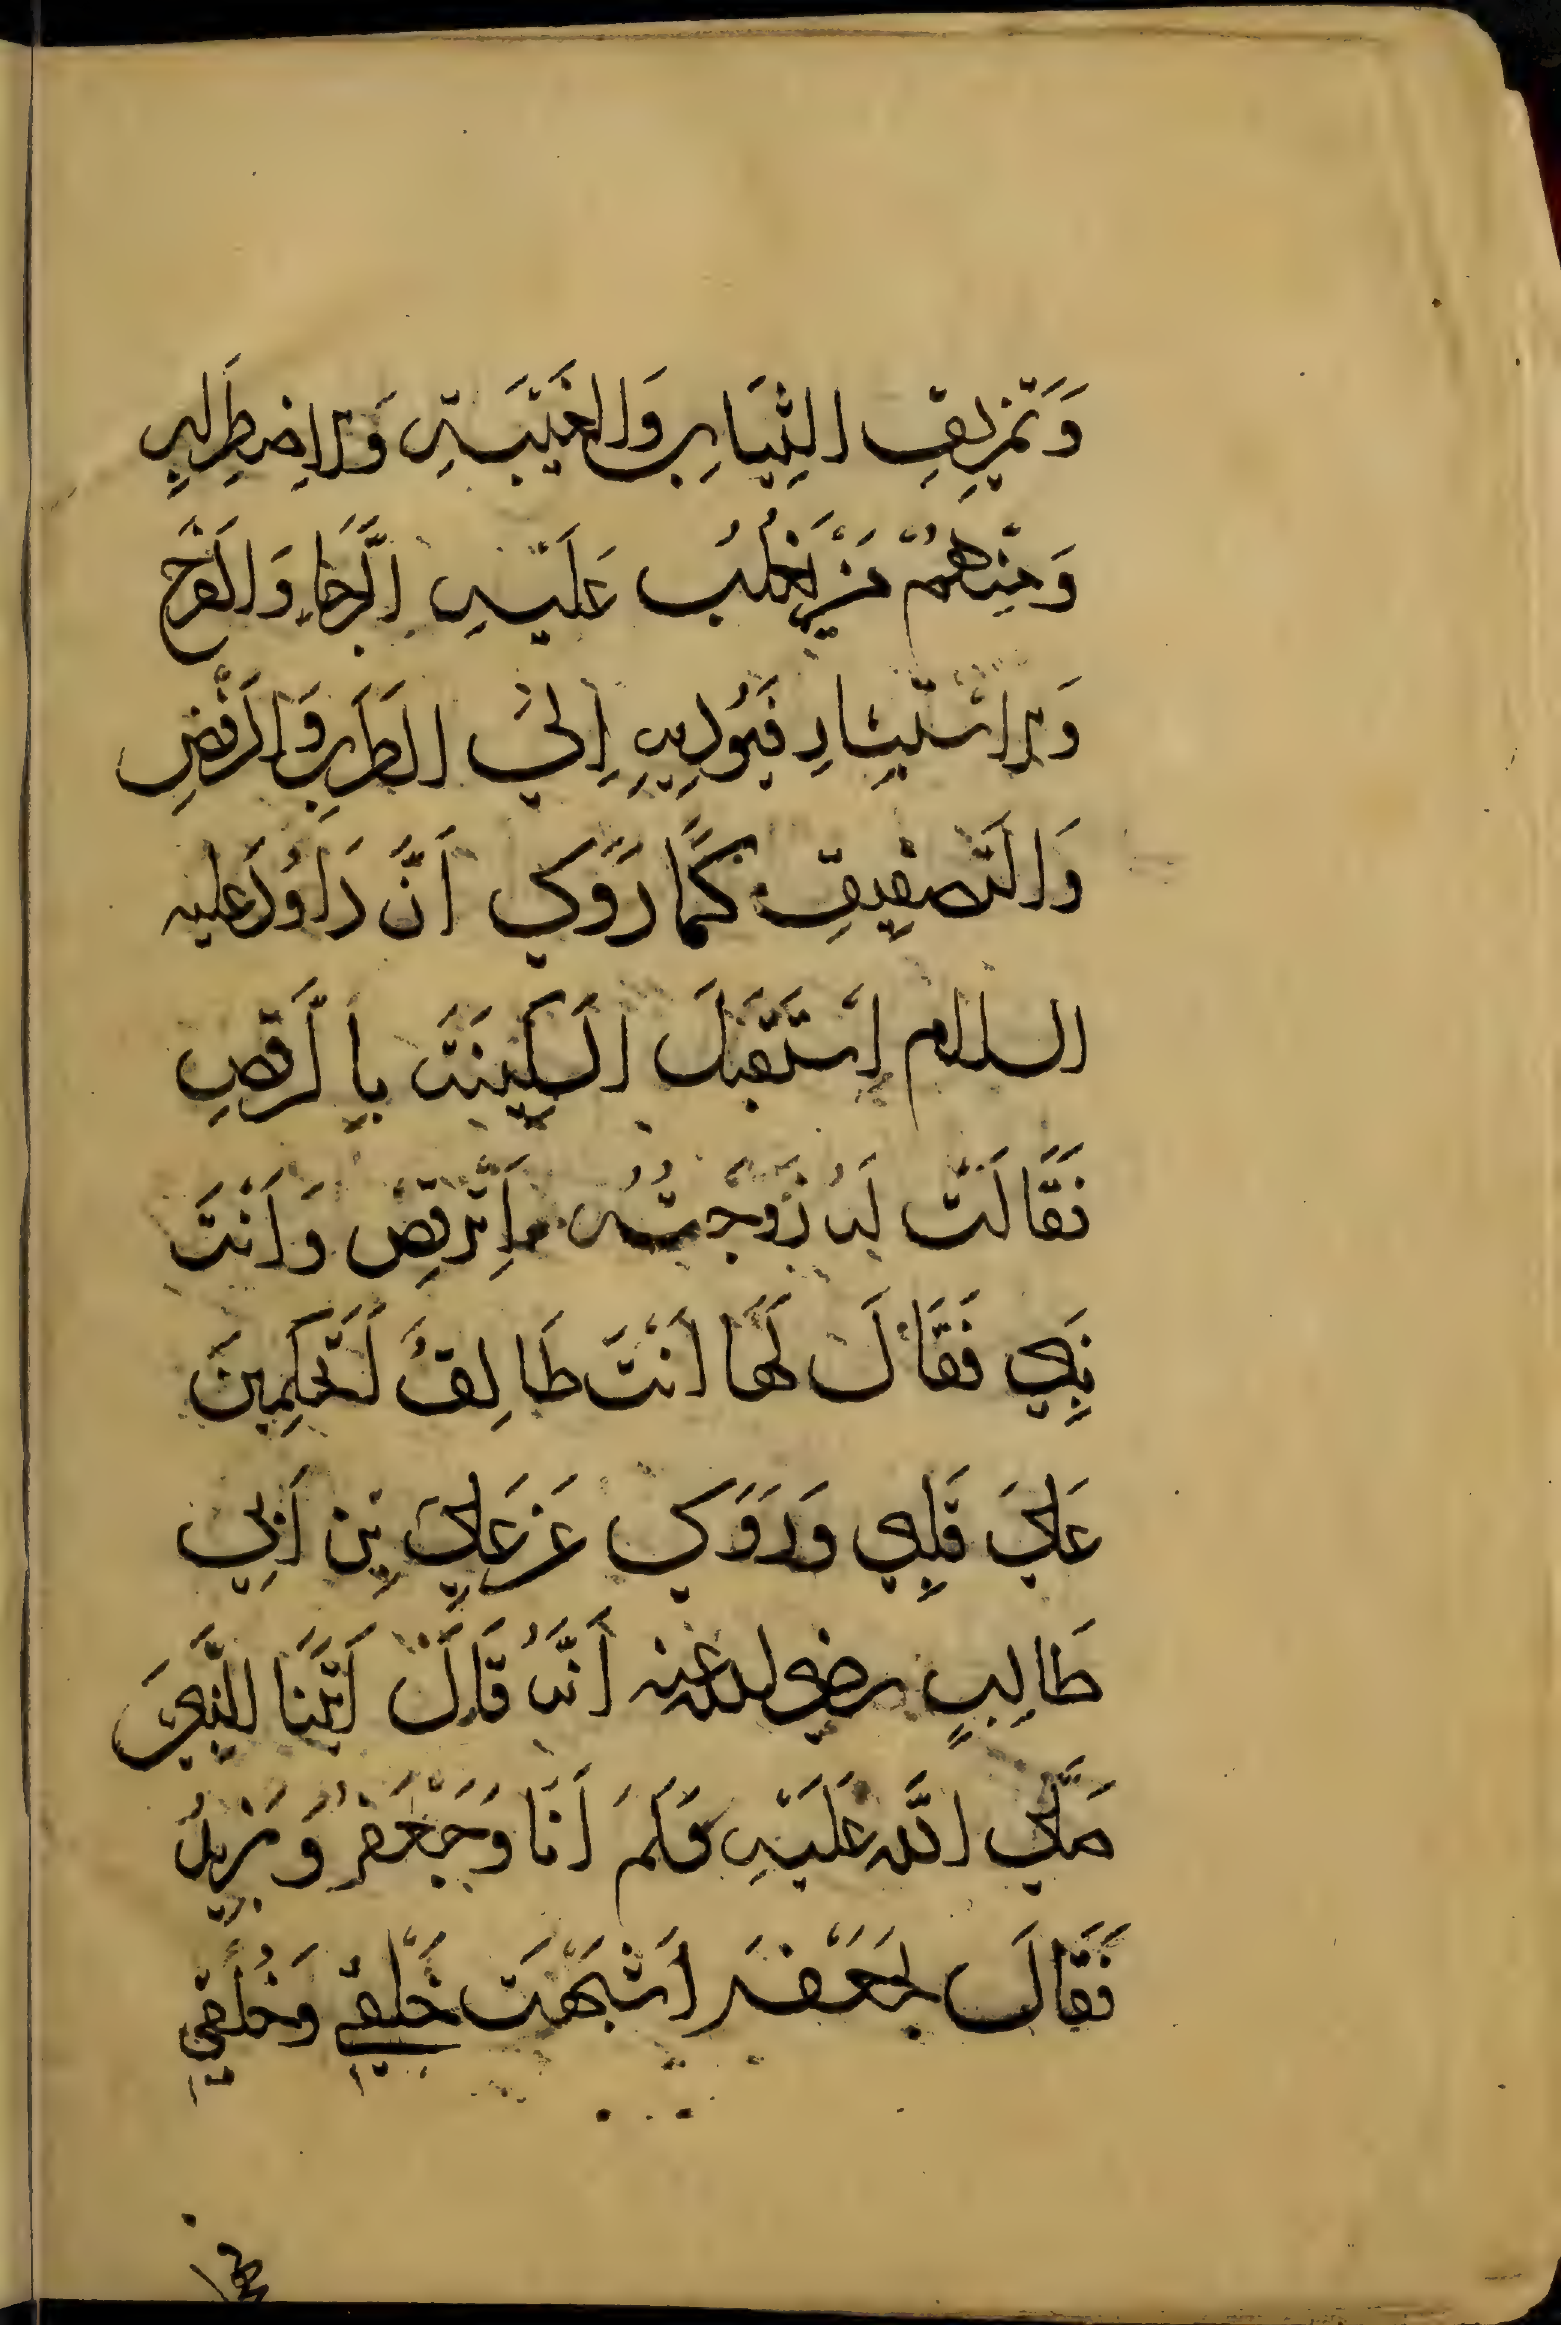 وَتَمْزِيقِ الثِّيَابِ وَالغَيْبَةِ وَالاِضْطِرَابِ
وَمِنْهُمْ مَنْ يَغْلِبُ عَلَيْهِ الرَّجَاءِ وَالفَرَحِ
وَالاِسْتِبْشَارِ فَيُؤَدِيهِ اِلَيَ الطَّرَبِ وَالرَقْصِ
وَالتَصْفِيقِ كَمَا رُوِيَ اَنَّ دَاوُدَ عليه
السلام اِسْتَقْبَلَ السَكِينَةَ بِالرَقْصِ
فَقَالَتْ لَهُ زَوْجَتُهُ اَتَرْقِصُ وَاَنْتَ
نَبِي فَقَالَ لَهَا اَنْتَ طَالِقُ اَتَحْكِمِينَ
عَلَيَ قَلْبِي وَرُوِيَ عَنْ عَلِيِ بْنِ اَبِي
طَالِبٍ رضي الله عنه اَنَّهُ قَالَ اَتَيْنَا النَّبِيَ
صَلَّي اللَّه عَلَيْهِ وَسَلَمَ اَنَا وَجَعْفَرُ وَزَيْدُ
فَقَالَ لِجَعْفَرَ اَشْبَهْتَ خَلْقِي وَخُلُقِي